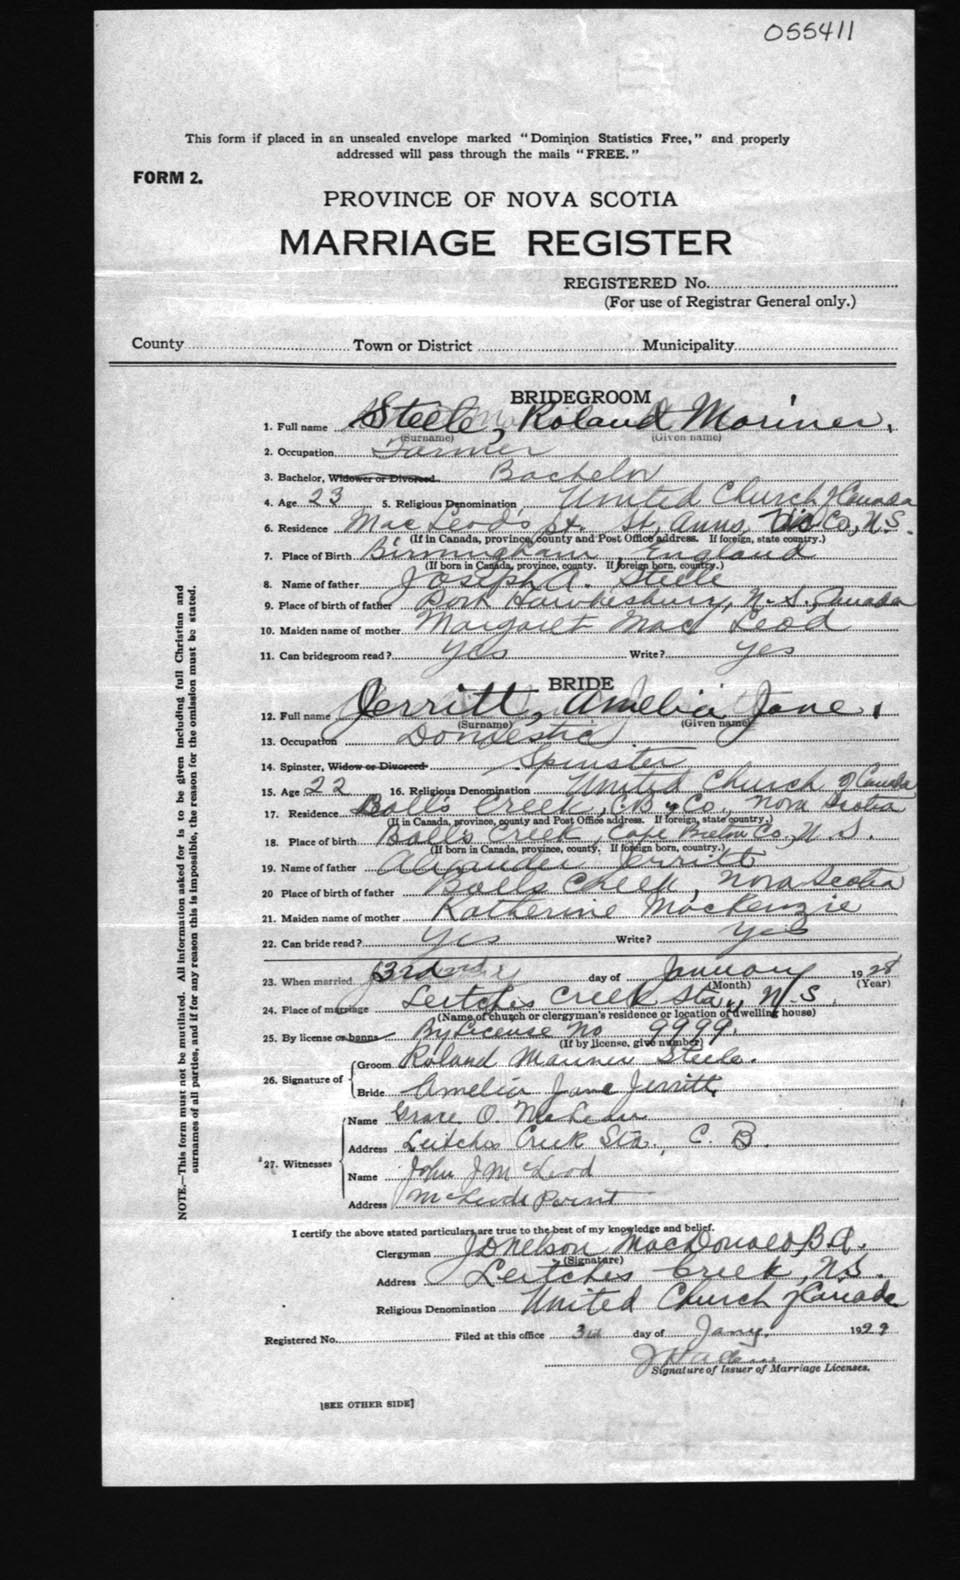 055411
This form if placed in an unsealed envelope marked "Dominion Statistics Free," and properly
addressed will pass through the mails "FREE."
FORM 2.
PROVINCE OF NOVA SCOTIA
MARRIAGE REGISTER
REGISTERED No.
(For use of Registrar General only.)
County Town or District Municipality
BRIDEGROOM
1. Full name Steele, Roland Mariner.
(Surname) (Given name)
2. Occupation Farmer
3. Bachelor, Widower or Divorced Bachelor
4. Age 23 5. Religious Denomination United Church of Canada
6. Residence MacLeod's pt. St. Anns, Vic Co, N.S.
(If in Canada, province, county and Post Office address. If foreign, state country.)
7. Place of Birth Birmingham, England
(If born in Canada, province, county. If foreign born, country.)
8. Name of father Joseph A. Steele
9. Place of birth of father Port Hawkesbury, N.S. Canada
10. Maiden name of mother Margaret MacLeod
11. Can bridegroom read? yes Write? yes
BRIDE
12. Full name Jerritt, Amelia Jane.
(Surname) (Given name)
13. Occupation Domestic
14. Spinster, Widow or Divorced Spinster
15. Age 22 16. Religious Denomination United Church of Canada
17. Residence Ball's Creek, C.B. Co. Nova Scotia
(If in Canada, province, county and Post Office address. If foreign, state country.)
18. Place of birth Ball's Creek, Cape Breton Co., N.S.
(If born in Canada, province, county. If foreign born, country.)
19. Name of father Alexander Jerritt
20 Place of birth of father Balls Creek, Nova Scotia
21. Maiden name of mother Katherine MacKenzie
22. Can bride read? yes Write? yes
23. When married 3rd day of January 1928
(Month) (Year)
24. Place of marriage Leitches Creek Sta., N.S.
(Name of church or clergyman's residence or location of dwelling house)
25. By license or banns By License No 9999.
(If by license, give number)
26. Signature of Groom Roland Mariner Steele.
Bride Amelia Jane Jerritt
27. Witnesses Name Grace O.
Address Leitches Creek Sta., C. B.
Name John J McLeod
Address McLeods Point
I certify the above stated particulars are true to the best of my knowledge and belief.
Clergyman J D Nelson MacDonald B.A.
(Signature)
Address Leitches Creek, N.S.
Religious Denomination United Church of Canada
Registered No. Filed at this office 3rd day of Jany. 1929
Signature of Issuer of Marriage Licenses.
[SEE OTHER SIDE]
NOTE.—This form must not be mutilated. All information asked for is to be given including full Christian and
surnames of all parties, and if for any reason this is impossible, the reason for the omission must be stated.